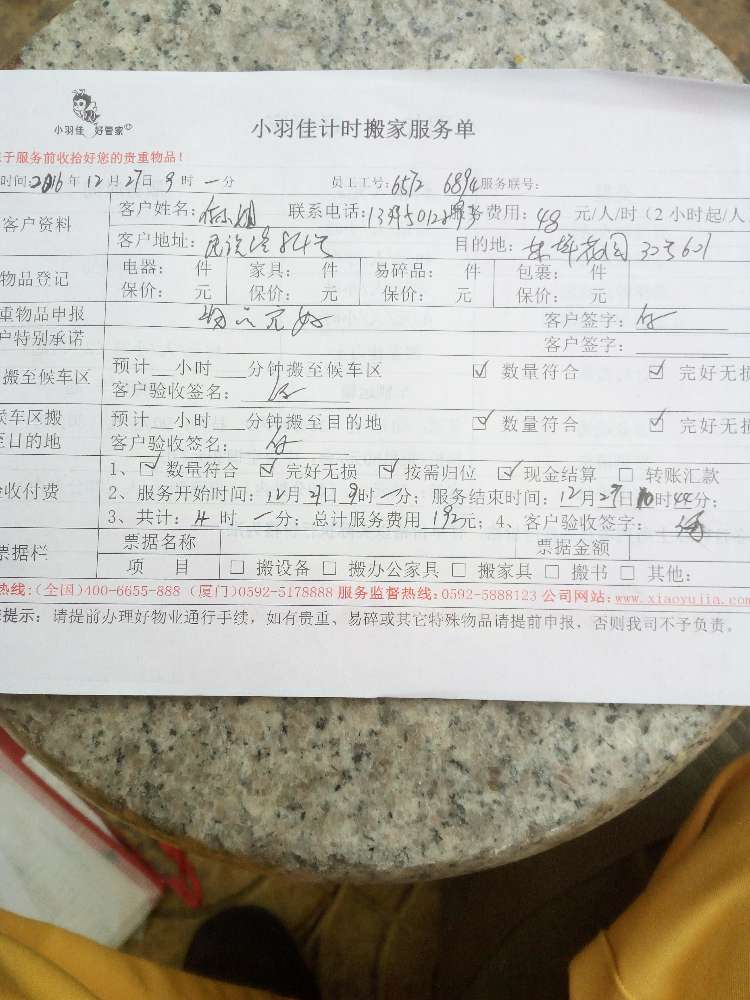 小羽佳 好管家
小羽佳计时搬家服务单
子服务前收拾好您的贵重物品！
时间:2016年12月27日9时一分 员工工号:6572 6894服务联号:
客户资料 客户姓名: 联系电话: 服务费用:48元/人/时（2小时起/人
客户地址: 目的地: 花园
物品登记 电器: 件 家具: 件 易碎品: 件 包裹: 件
保价: 元 保价: 元 保价: 元 保价: 元
重物品申报 物品完好 客户签字:
户特别承诺 客户签字:
搬至候车区 预计__小时__分钟搬至候车区 ☑ 数量符合 ☑ 完好无损
客户验收签名:
候车区搬 预计__小时__分钟搬至目的地 ☑ 数量符合 ☑ 完好无损
至目的地 客户验收签名:
验收付费 1、☑ 数量符合 ☑ 完好无损 ☑ 按需归位 ☑ 现金结算 □ 转账汇款
2、服务开始时间: 12月27日9时一分; 服务结束时间: 12月27日10时44分;
3、共计: 4时一分; 总计服务费用192元; 4、客户验收签字:
票据栏 票据名称 票据金额
项 目 □ 搬设备 □ 搬办公家具 □ 搬家具 □ 搬书 □ 其他:
热线:(全国)400-6655-888 (厦门)0592-5178888 服务监督热线:0592-5888123 公司网站:www.xiaoyujia.com
提示: 请提前办理好物业通行手续，如有贵重、易碎或其它特殊物品请提前申报，否则我司不予负责。